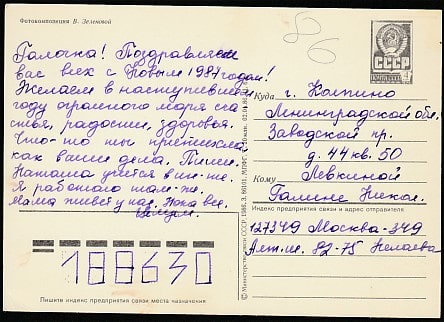 Фотокомпозиция В. Зеленовой
86
СССР
Галочка! Поздравляем
вас всех с Новым 1987 годом!
Желаем в наступившем
году огромного моря сча-
стья, радости, здоровья.
Что-то ты притихла
как ваши дела. Пиши.
Наташа учится в
Я работаю там-же.
Мама живет у нас. Пока все.
Куда г. Колпино
Ленинградской обл.
Заводской пр.
д. 44 кв. 50
Кому Левкиной
Галине Никол.
Индекс предприятия связи и адрес отправителя
127349 Москва-349
82-75 Нелаева
188630
Пишите индекс предприятия связи места назначения